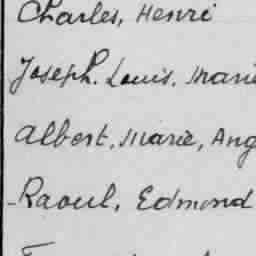 Charles, Henri
Joseph. Louis. Marie
Albert, Marie, Ang
-Raoul, Edmond